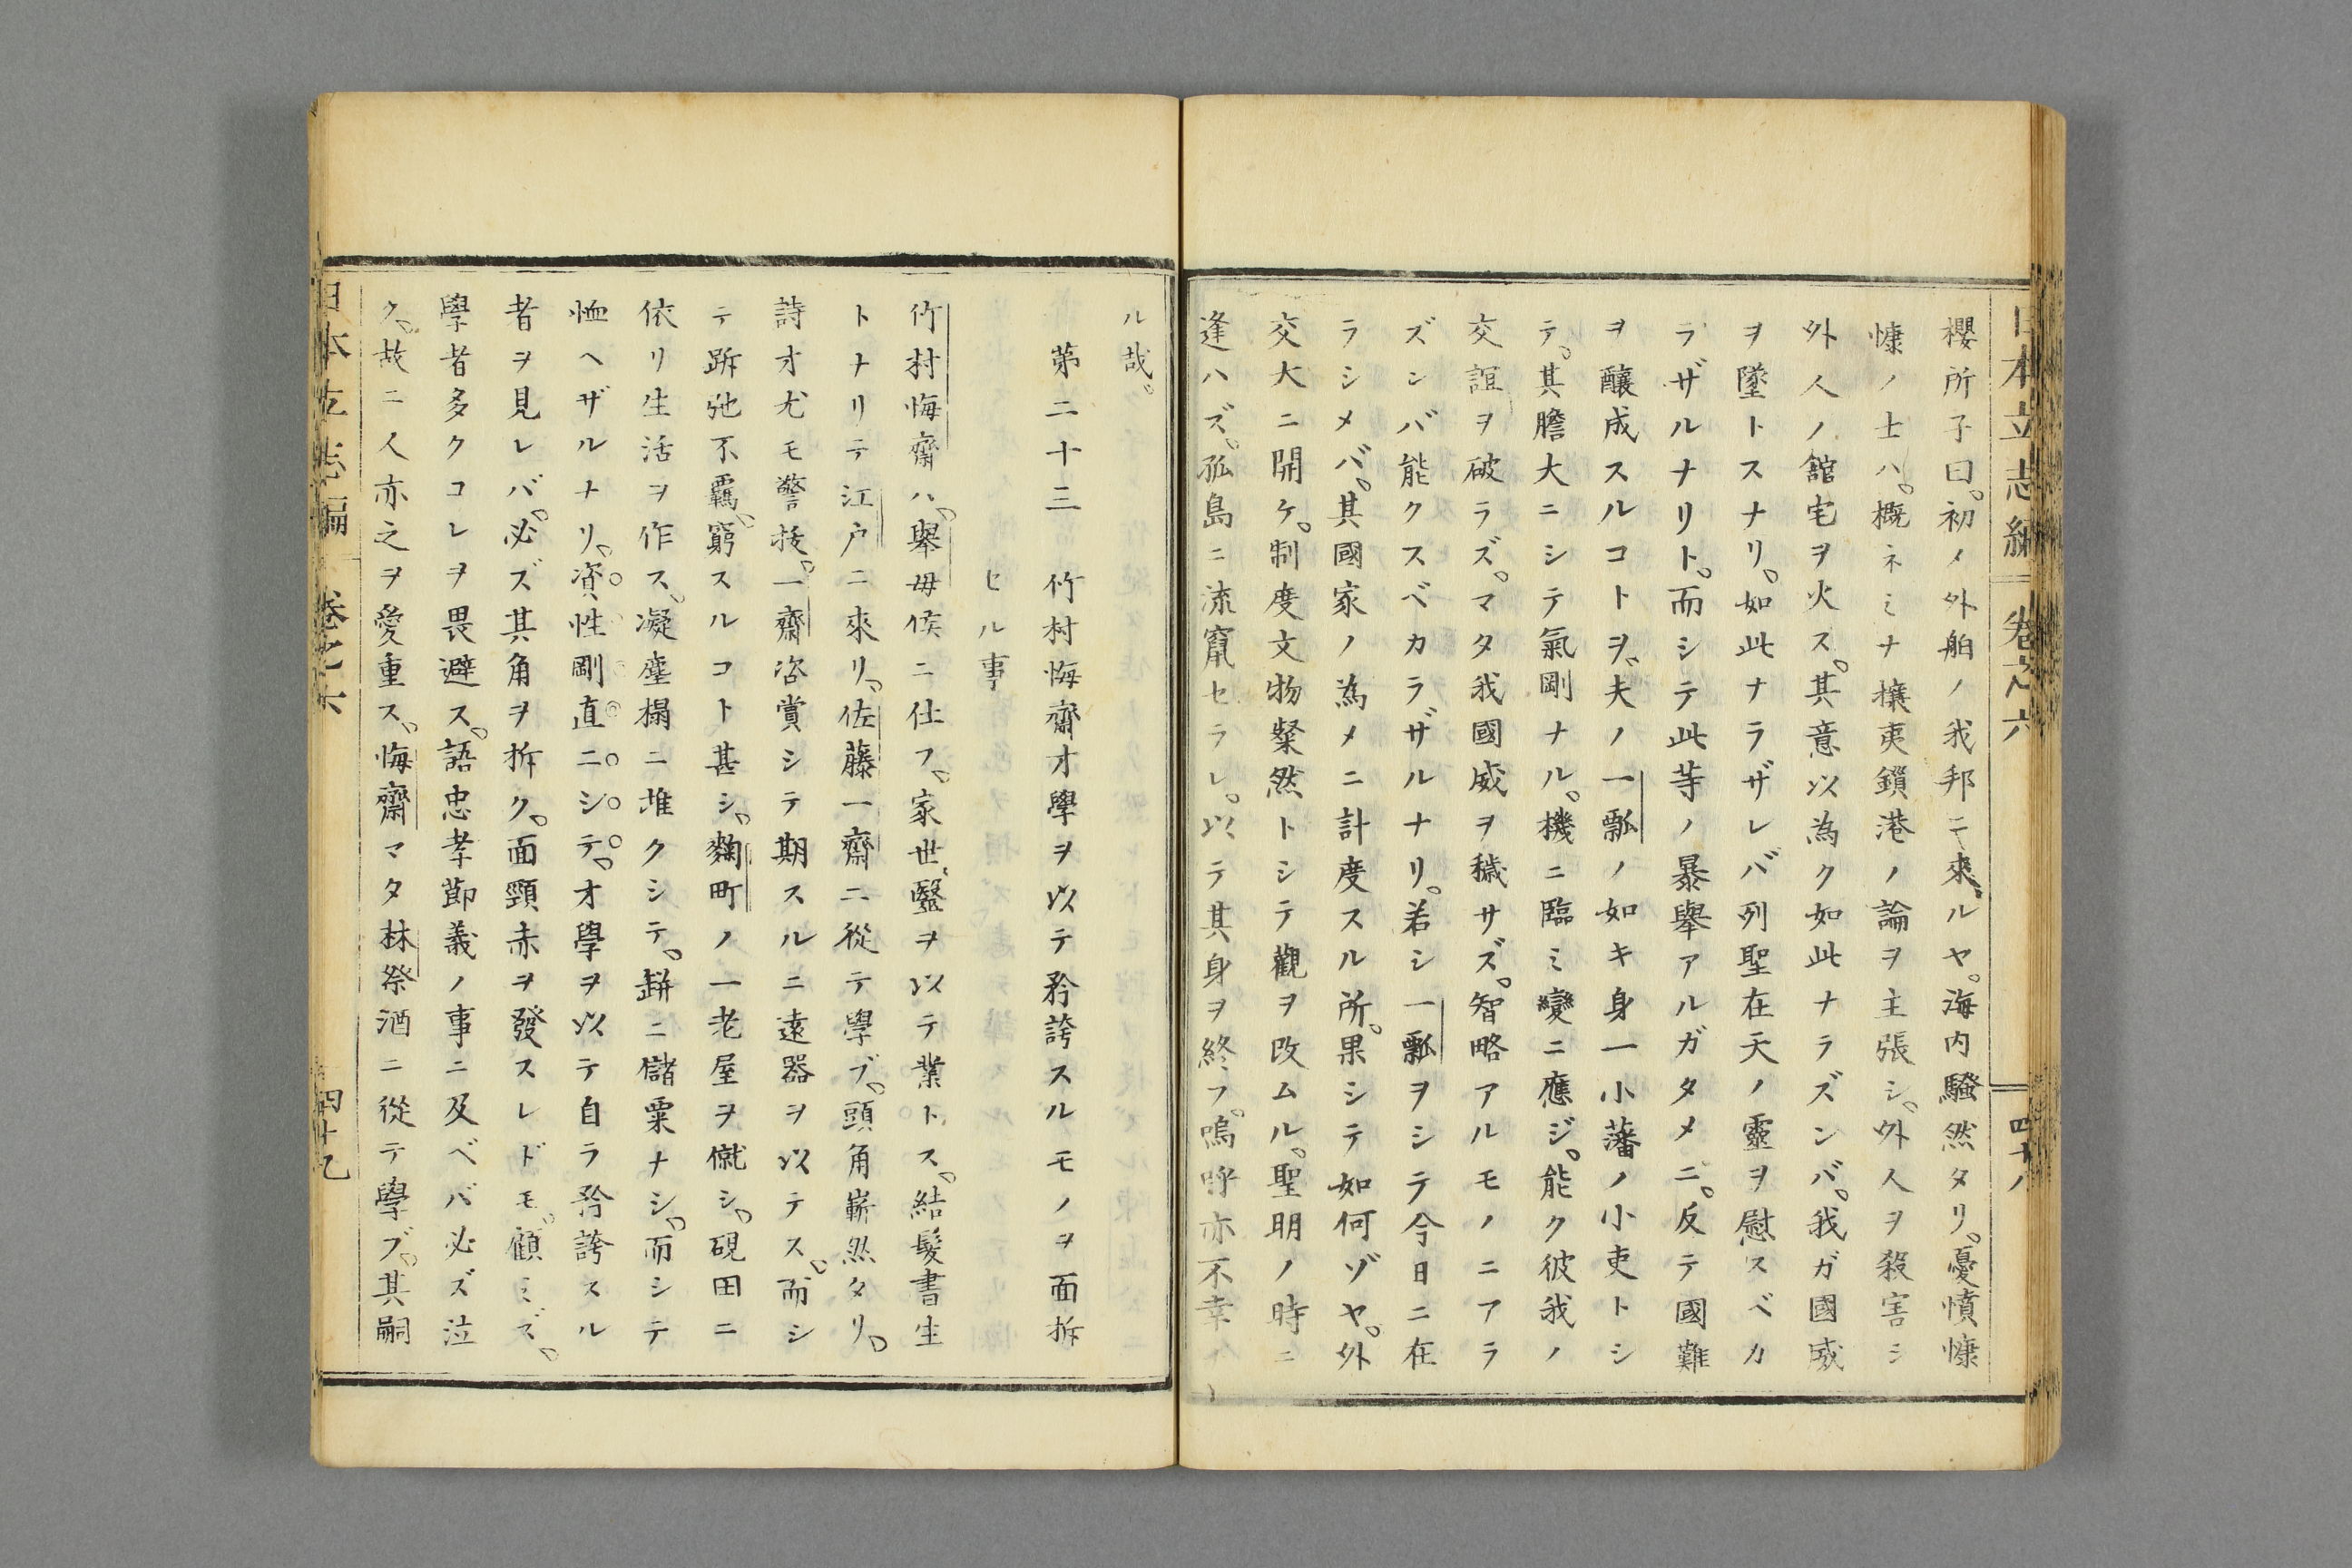 日本立志編 卷之六 四十八
櫻所子曰。初メ外舶ノ我邦ニ來ルヤ。海内騷然タリ。憂憤慷
慷ノ士ハ。概ネミナ攘夷鎖港ノ論ヲ主張シ。外人ヲ殺害シ
外人ノ舘宅ヲ火ス。其意以為ク如此ナラズンバ。我ガ國威
ヲ墜トスナリ。如此ナラザレバ列聖在天ノ靈ヲ慰スベカ
ラザルナリト。而シテ此等ノ暴舉アルガタメニ。反テ國難
ヲ釀成スルコトヲ。夫ノ一瓢ノ如キ身一小藩ノ小吏トシ
テ。其膽大ニシテ氣剛ナル。機ニ臨ミ變ニ應ジ。能ク彼我ノ
交誼ヲ破ラズ。マタ我國威ヲ穢サズ。智略アルモノニアラ
ズンバ能クスベカラザルナリ。若シ一瓢ヲシテ今日ニ在
ラシメバ。其國家ノ為メニ計度スル所。果シテ如何ゾヤ。外
交大ニ開ケ。制度文物粲然トシテ觀ヲ改ムル。聖明ノ時ニ
逢ハズ。孤島ニ流竄セラレ。以テ其身ヲ終フ。嗚呼亦不幸ナ
ル哉。
第二十三 竹村悔齋才學ヲ以テ矜誇スルモノヲ面折
セル事
竹村悔齋ハ。舉母侯ニ仕フ。家世醫ヲ以テ業トス。結髮書生
トナリテ江戸ニ來リ。佐藤一齋ニ從テ學ブ。頭角嶄然タリ。
詩才尤モ警拔。一齋咨賞シテ期スルニ遠器ヲ以テス。而シ
テ跅弛不覊。窮スルコト甚シ。麴町ノ一老屋ヲ僦シ。硯田ニ
依リ生活ヲ作ス。凝塵榻ニ堆クシテ。缾ニ儲粟ナシ。而シテ
恤ヘザルナリ。資性剛直ニシテ。才學ヲ以テ自ラ矜誇スル
者ヲ見レバ。必ズ其角ヲ折ク。面頸赤ヲ發スレドモ。顧ミズ。
學者多クコレヲ畏避ス。語忠孝節義ノ事ニ及ベバ必ズ泣
ク。故ニ人亦之ヲ愛重ス。悔齋マタ林祭酒ニ從テ學ブ。其嗣
日本立志編 卷之六 四十九